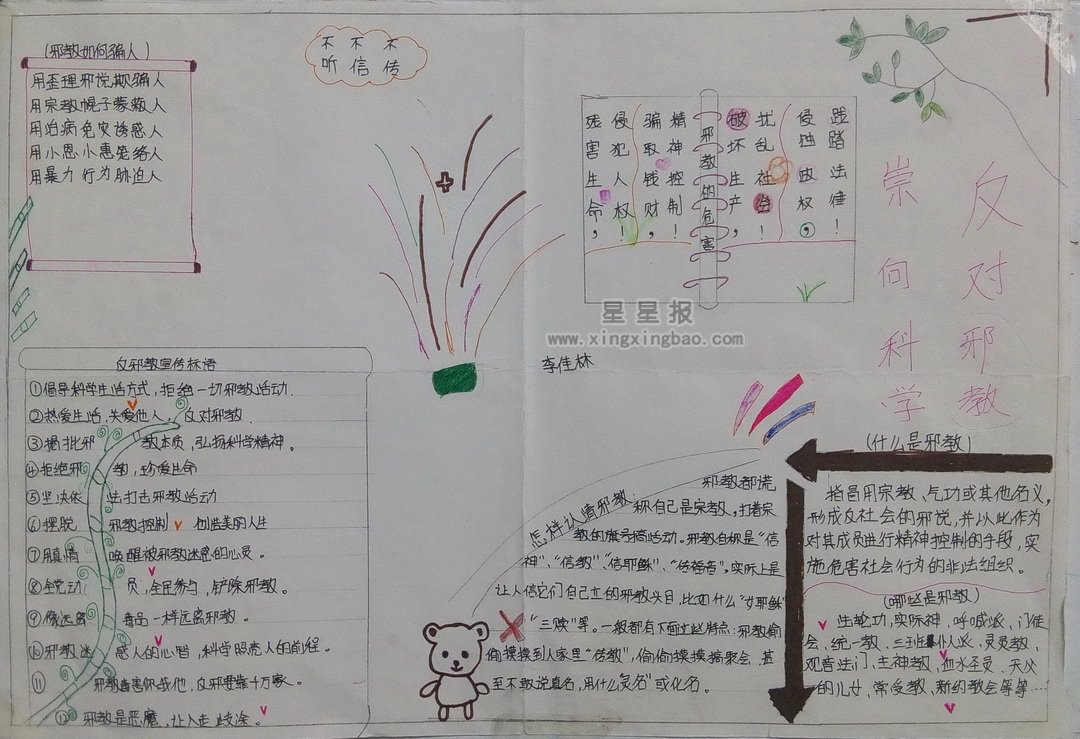 (邪教如何骗人)
用歪理邪说欺骗人
用宗教幌子蒙蔽人
用治病免灾诱惑人
用小恩小惠笼络人
用暴力行为胁迫人
不 不 不
听 信 传
邪教的危害
残害生命,
侵犯人权!
骗取钱财,
精神控制!
破坏生产,
扰乱社治!
侵蚀政权,
践踏法律!
反对邪教
崇向科学
星星报
www.xingxingbao.com
李佳林
反邪教宣传标语
①倡导科学生活方式,拒绝一切邪教活动.
②热爱生活,关爱他人,反对邪教.
③揭批邪教本质,弘扬科学精神。
④拒绝邪教,珍爱生命
⑤坚决依法打击邪教活动
⑥摆脱邪教控制 创造美丽人生
⑦用真情唤醒被邪教迷惑的心灵。
⑧全党动员,全民参与,铲除邪教。
⑨像远离毒品一样远离邪教。
⑩邪教迷惑人的心智,科学照亮人的前程。
⑪邪教害你我他,反邪要靠千万家。
⑫邪教是恶魔,让人走歧途。
怎样认清邪教:
邪教都谎
称自己是宗教,打着宗
教的旗号搞活动。邪教自称是“信
神”、“信教”、“信耶稣”、“传福音”,实际上是
让人信它们自己立的邪教头目,比如什么“女耶稣”
“三赎”等。一般都有下面这些特点:邪教偷
偷摸摸到人家里“传教”,偷偷摸摸搞聚会,甚
至不敢说真名,用什么“灵名”或化名。
(什么是邪教)
指冒用宗教、气功或其他名义,
形成反社会的邪说,并以此作为
对其成员进行精神控制的手段,实
施危害社会行为的非法组织。
(哪些是邪教)
法轮功,实际神,呼喊派,门徒
会,统一教,三班仆人派,灵灵教,
观音法门,主神教,血水圣灵,天父
的儿女,常受教,新约教会等等……